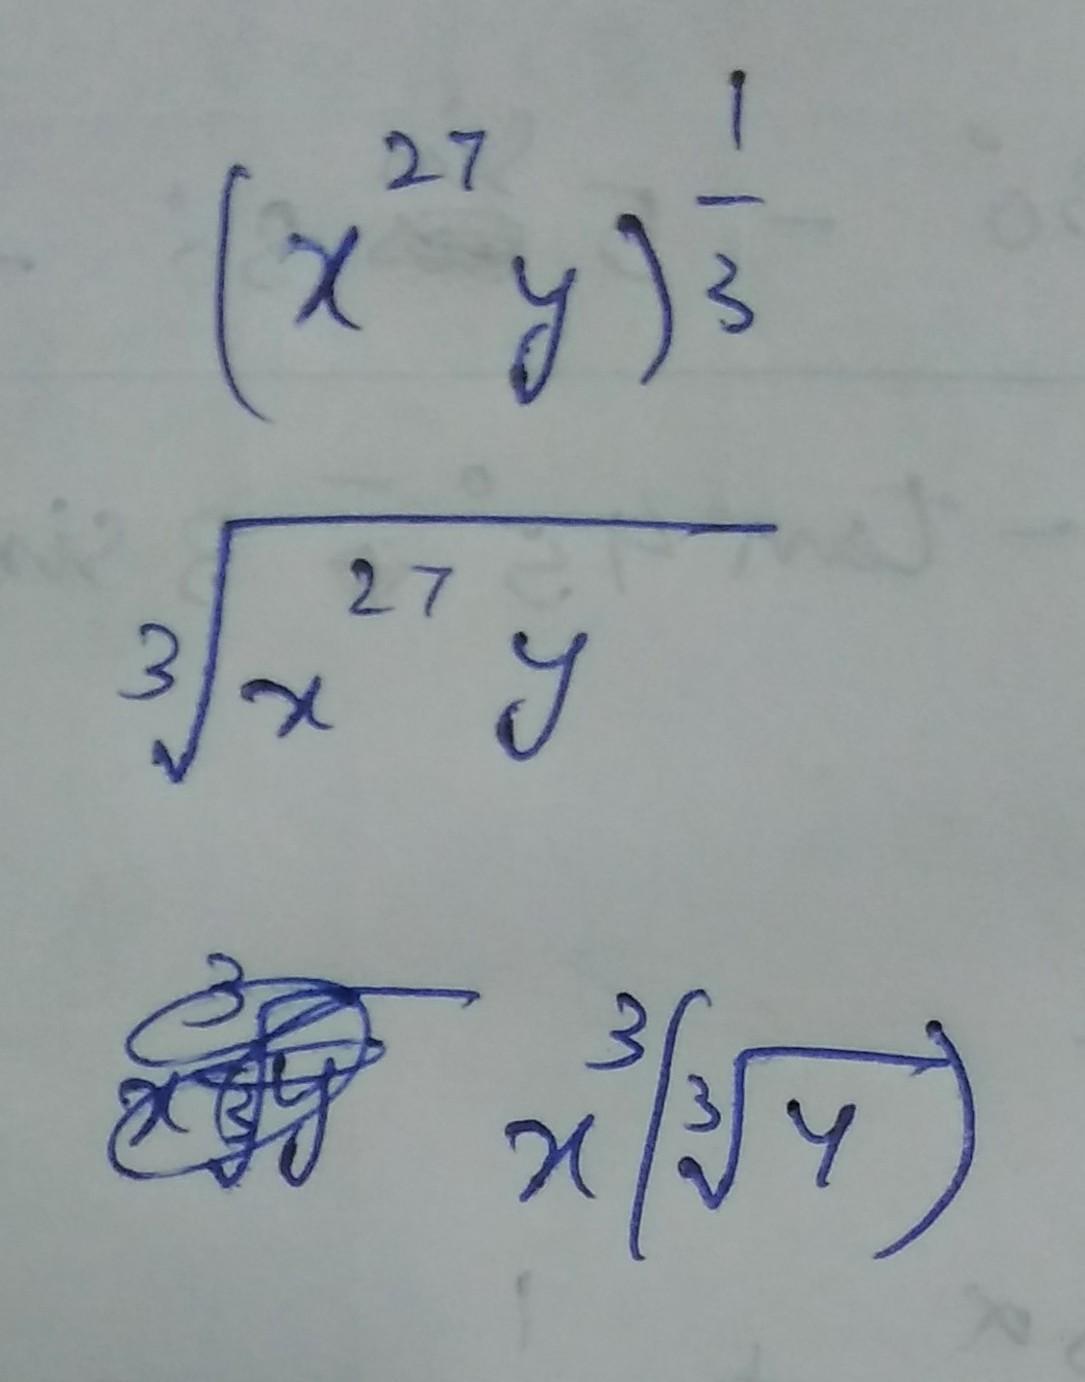 (x²⁷y)^(1/3)
∛(x²⁷y)
x³(∛y)